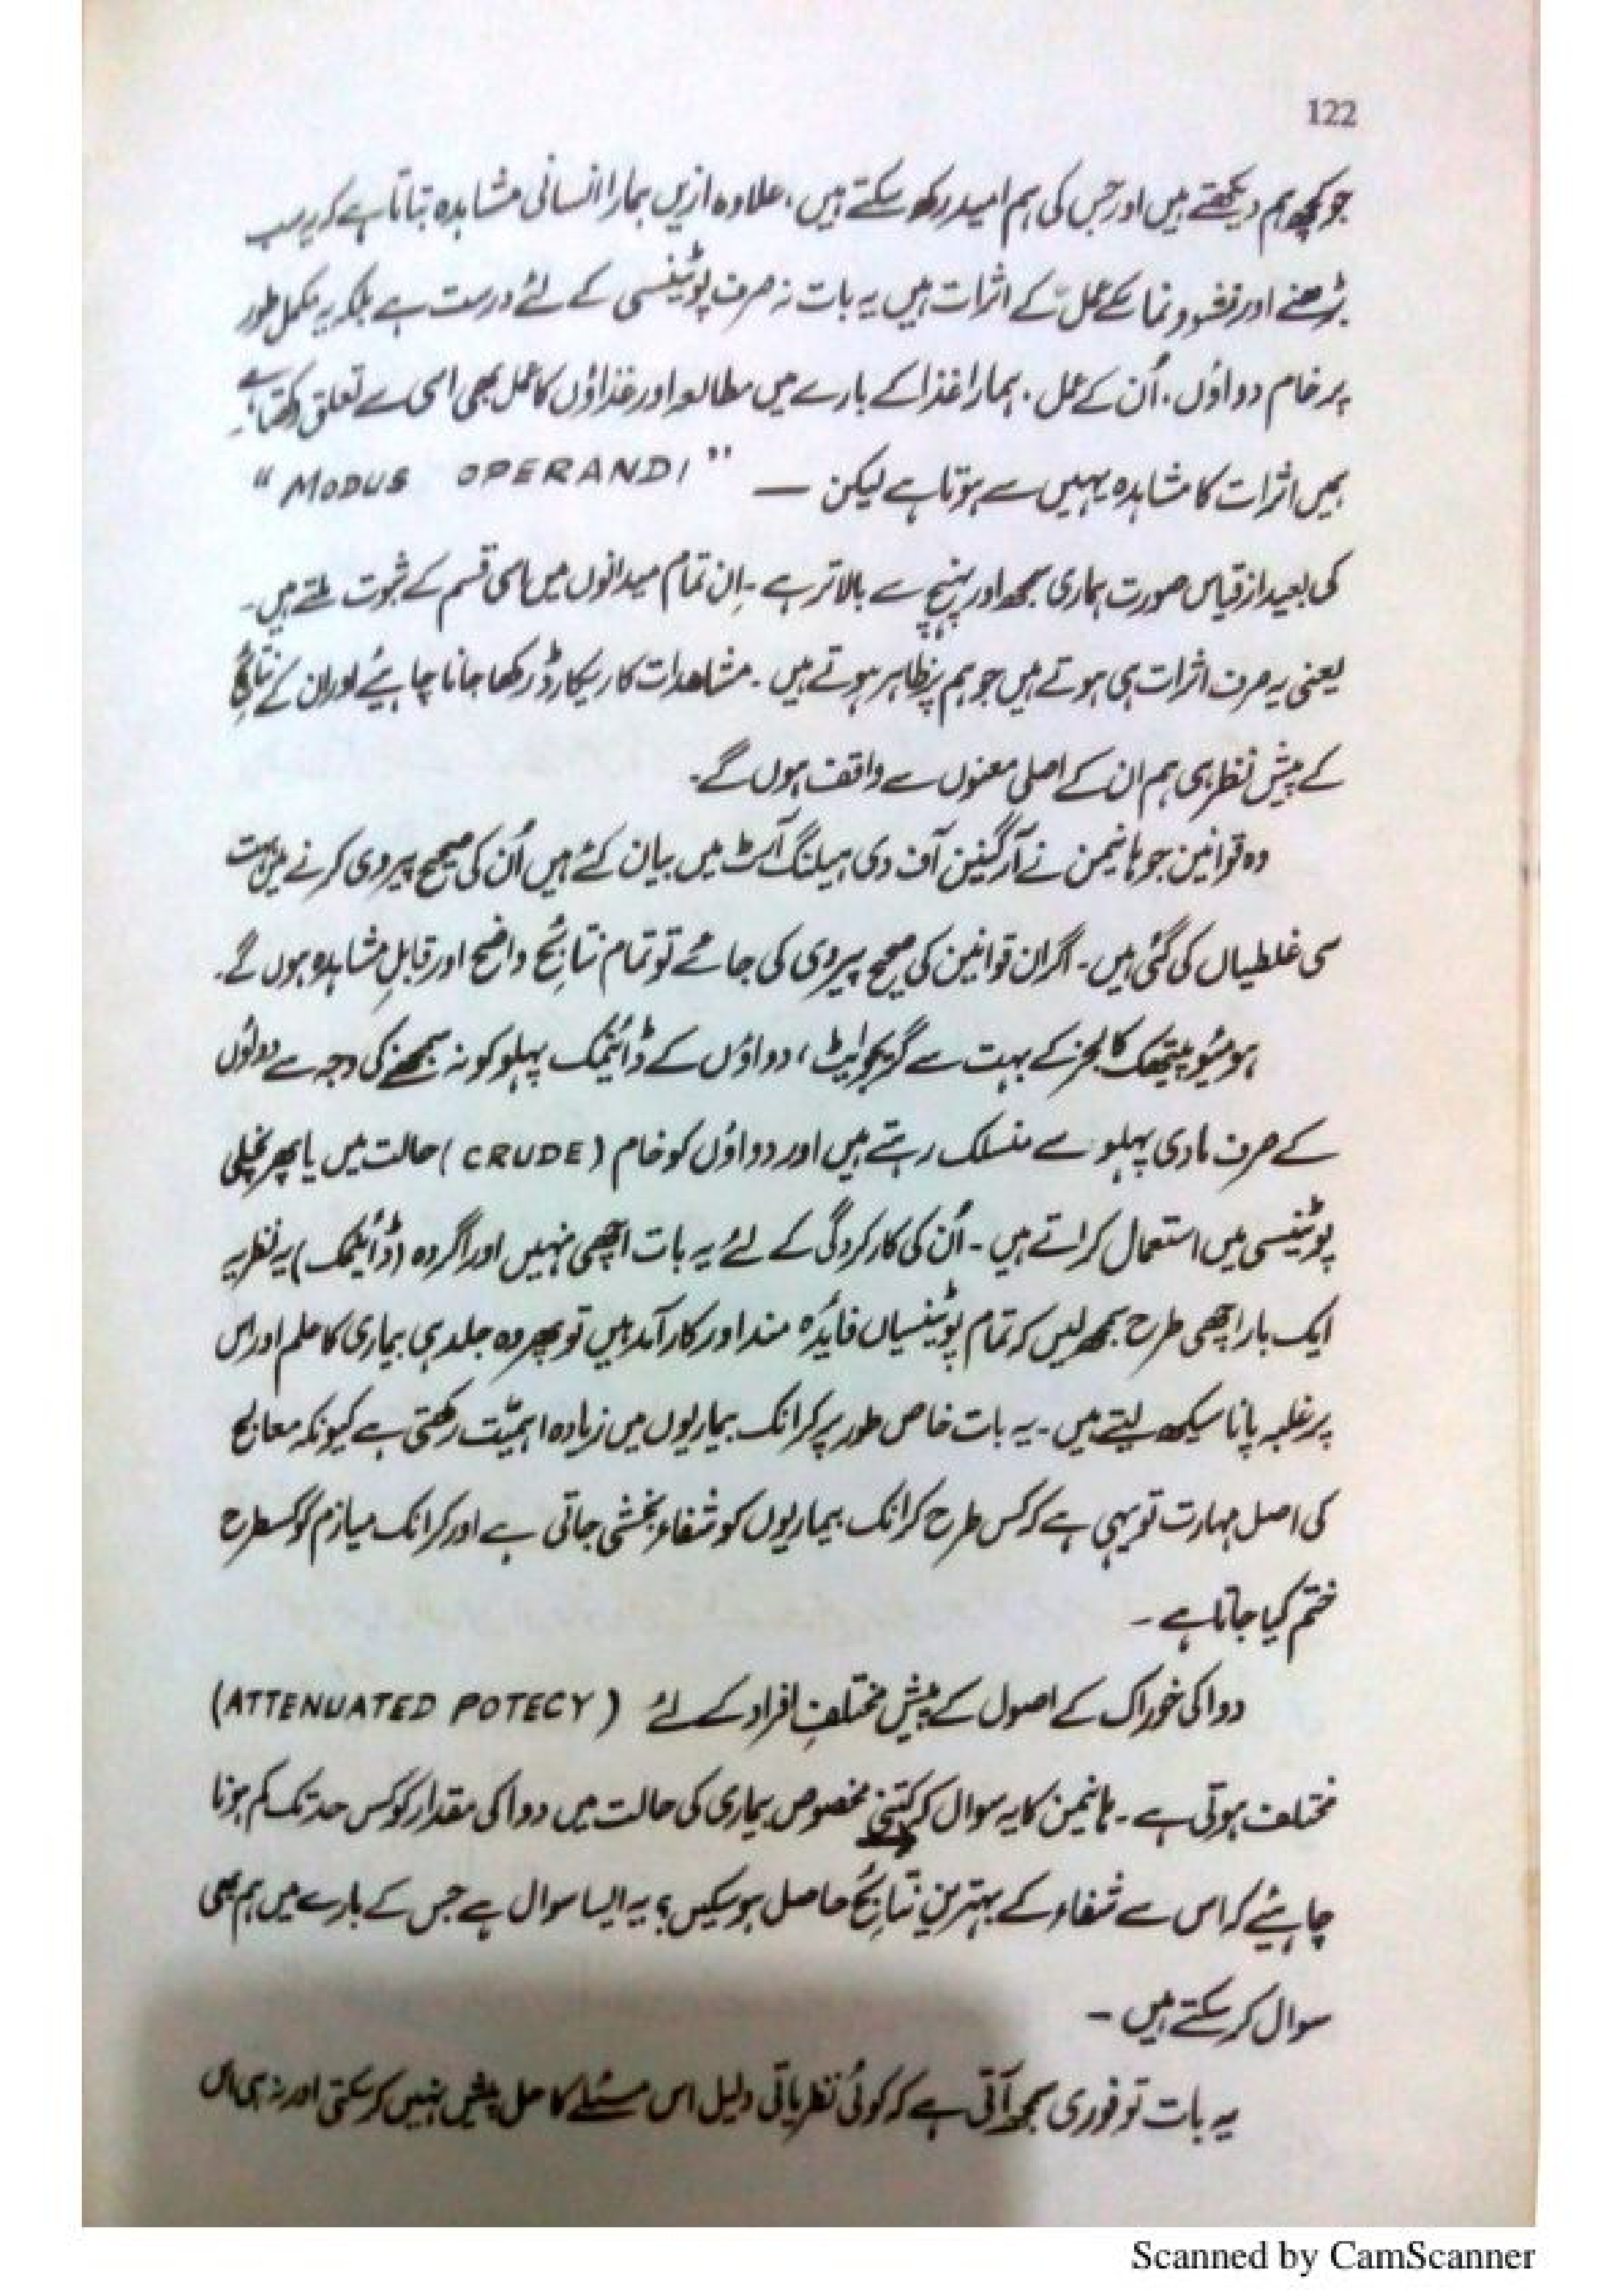 122
جو کچھ ہم دیکھتے ہیں اور جس کی ہم امید رکھ سکتے ہیں، علاوہ ازیں ہمارا انسانی مشاہدہ بتاتا ہے کہ یہ سب
بڑھنے اور نشوونما کے عمل کے اثرات ہیں یہ بات نہ صرف پوٹینسی کے لئے درست ہے بلکہ یہ مکمل طور
پر خام دواؤں، اُن کے عمل، ہمارا غذا کے بارے میں مطالعہ اور غذاؤں کا عمل بھی اسی سے تعلق رکھتا ہے۔
ہمیں اثرات کا مشاہدہ یہیں سے ہوتا ہے لیکن — "MODUS OPERANDI"
کی بعید از قیاس صورت ہماری سمجھ اور پہنچ سے بالاتر ہے۔ اِن تمام میدانوں میں اسی قسم کے ثبوت ملتے ہیں۔
یعنی یہ صرف اثرات ہی ہوتے ہیں جو ہم پر ظاہر ہوتے ہیں۔ مشاہدات کا ریکارڈ رکھا جانا چاہیئے اور ان کے نتائج
کے پیش نظر ہی ہم ان کے اصلی معنوں سے واقف ہوں گے۔
وہ قوانین جو ہانیمن نے آرگینن آف دی ہیلنگ آرٹ میں بیان کئے ہیں اُن کی صحیح پیروی کرنے میں بہت
سی غلطیاں کی گئی ہیں۔ اگر ان قوانین کی صحیح پیروی کی جائے تو تمام نتائج واضح اور قابلِ مشاہدہ ہوں گے۔
ہومیوپیتھک کالجز کے بہت سے گریجوایٹ، دواؤں کے ڈائنمک پہلو کو نہ سمجھنے کی وجہ سے دواؤں
کے صرف مادی پہلو سے منسلک رہتے ہیں اور دواؤں کو خام (CRUDE) حالت میں یا پھر نچلی
پوٹینسی میں استعمال کراتے ہیں۔ اُن کی کارکردگی کے لئے یہ بات اچھی نہیں اور اگر وہ (ڈائنمک) یہ نظریہ
ایک بار اچھی طرح سمجھ لیں کہ تمام پوٹینسیاں فائدہ مند اور کارآمد ہیں تو پھر وہ جلد ہی بیماری کا علم اور اس
پر غلبہ پانا سیکھ لیتے ہیں۔ یہ بات خاص طور پر کرانک بیماریوں میں زیادہ اہمیّت رکھتی ہے کیونکہ معالج
کی اصل مہارت تو یہی ہے کہ کس طرح کرانک بیماریوں کو شفاء بخشی جاتی ہے اور کرانک میازم کو کسطرح
ختم کیا جاتا ہے۔
دوا کی خوراک کے اصول کے پیش مختلف افراد کے لئے (ATTENUATED POTECY)
مختلف ہوتی ہے۔ ہانیمن کا یہ سوال کہ کتنی مخصوص بیماری کی حالت میں دوا کی مقدار کو کس حد تک کم ہونا
چاہیئے کہ اس سے شفاء کے بہترین نتائج حاصل ہو سکیں؟ یہ ایسا سوال ہے جس کے بارے میں ہم بھی
سوال کر سکتے ہیں۔
یہ بات تو فوری سمجھ آتی ہے کہ کوئی نظریاتی دلیل اس مسئلے کا حل پیش نہیں کر سکتی اور نہ ہی اس
Scanned by CamScanner